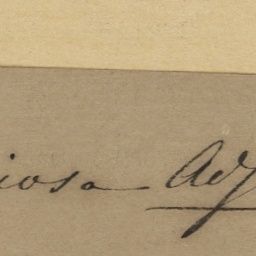 iosa Adj